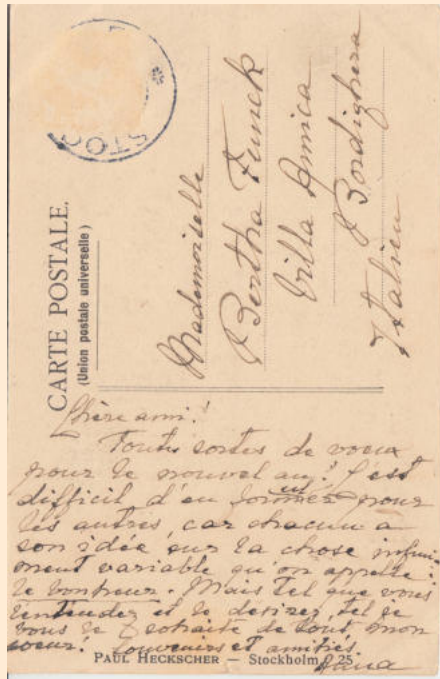 STOC
CARTE POSTALE.
(Union postale universelle)
Mademoiselle
Bertha Funck
Villa Amica
Bordighera
Italien
Chère ami!
Toutes sortes de voeux
pour le nouvel an! C'est
difficil d'en former pour
les autres, car chacun a
son idée sur la chose infini-
ment variable qu'on appelle:
le bonheur. Mais tel que vous
l'entendez et le desirez, tel je
vous le souhaite de tout mon
coeur. Souvenirs et amitiés.
PAUL HECKSCHER — Stockholm 25